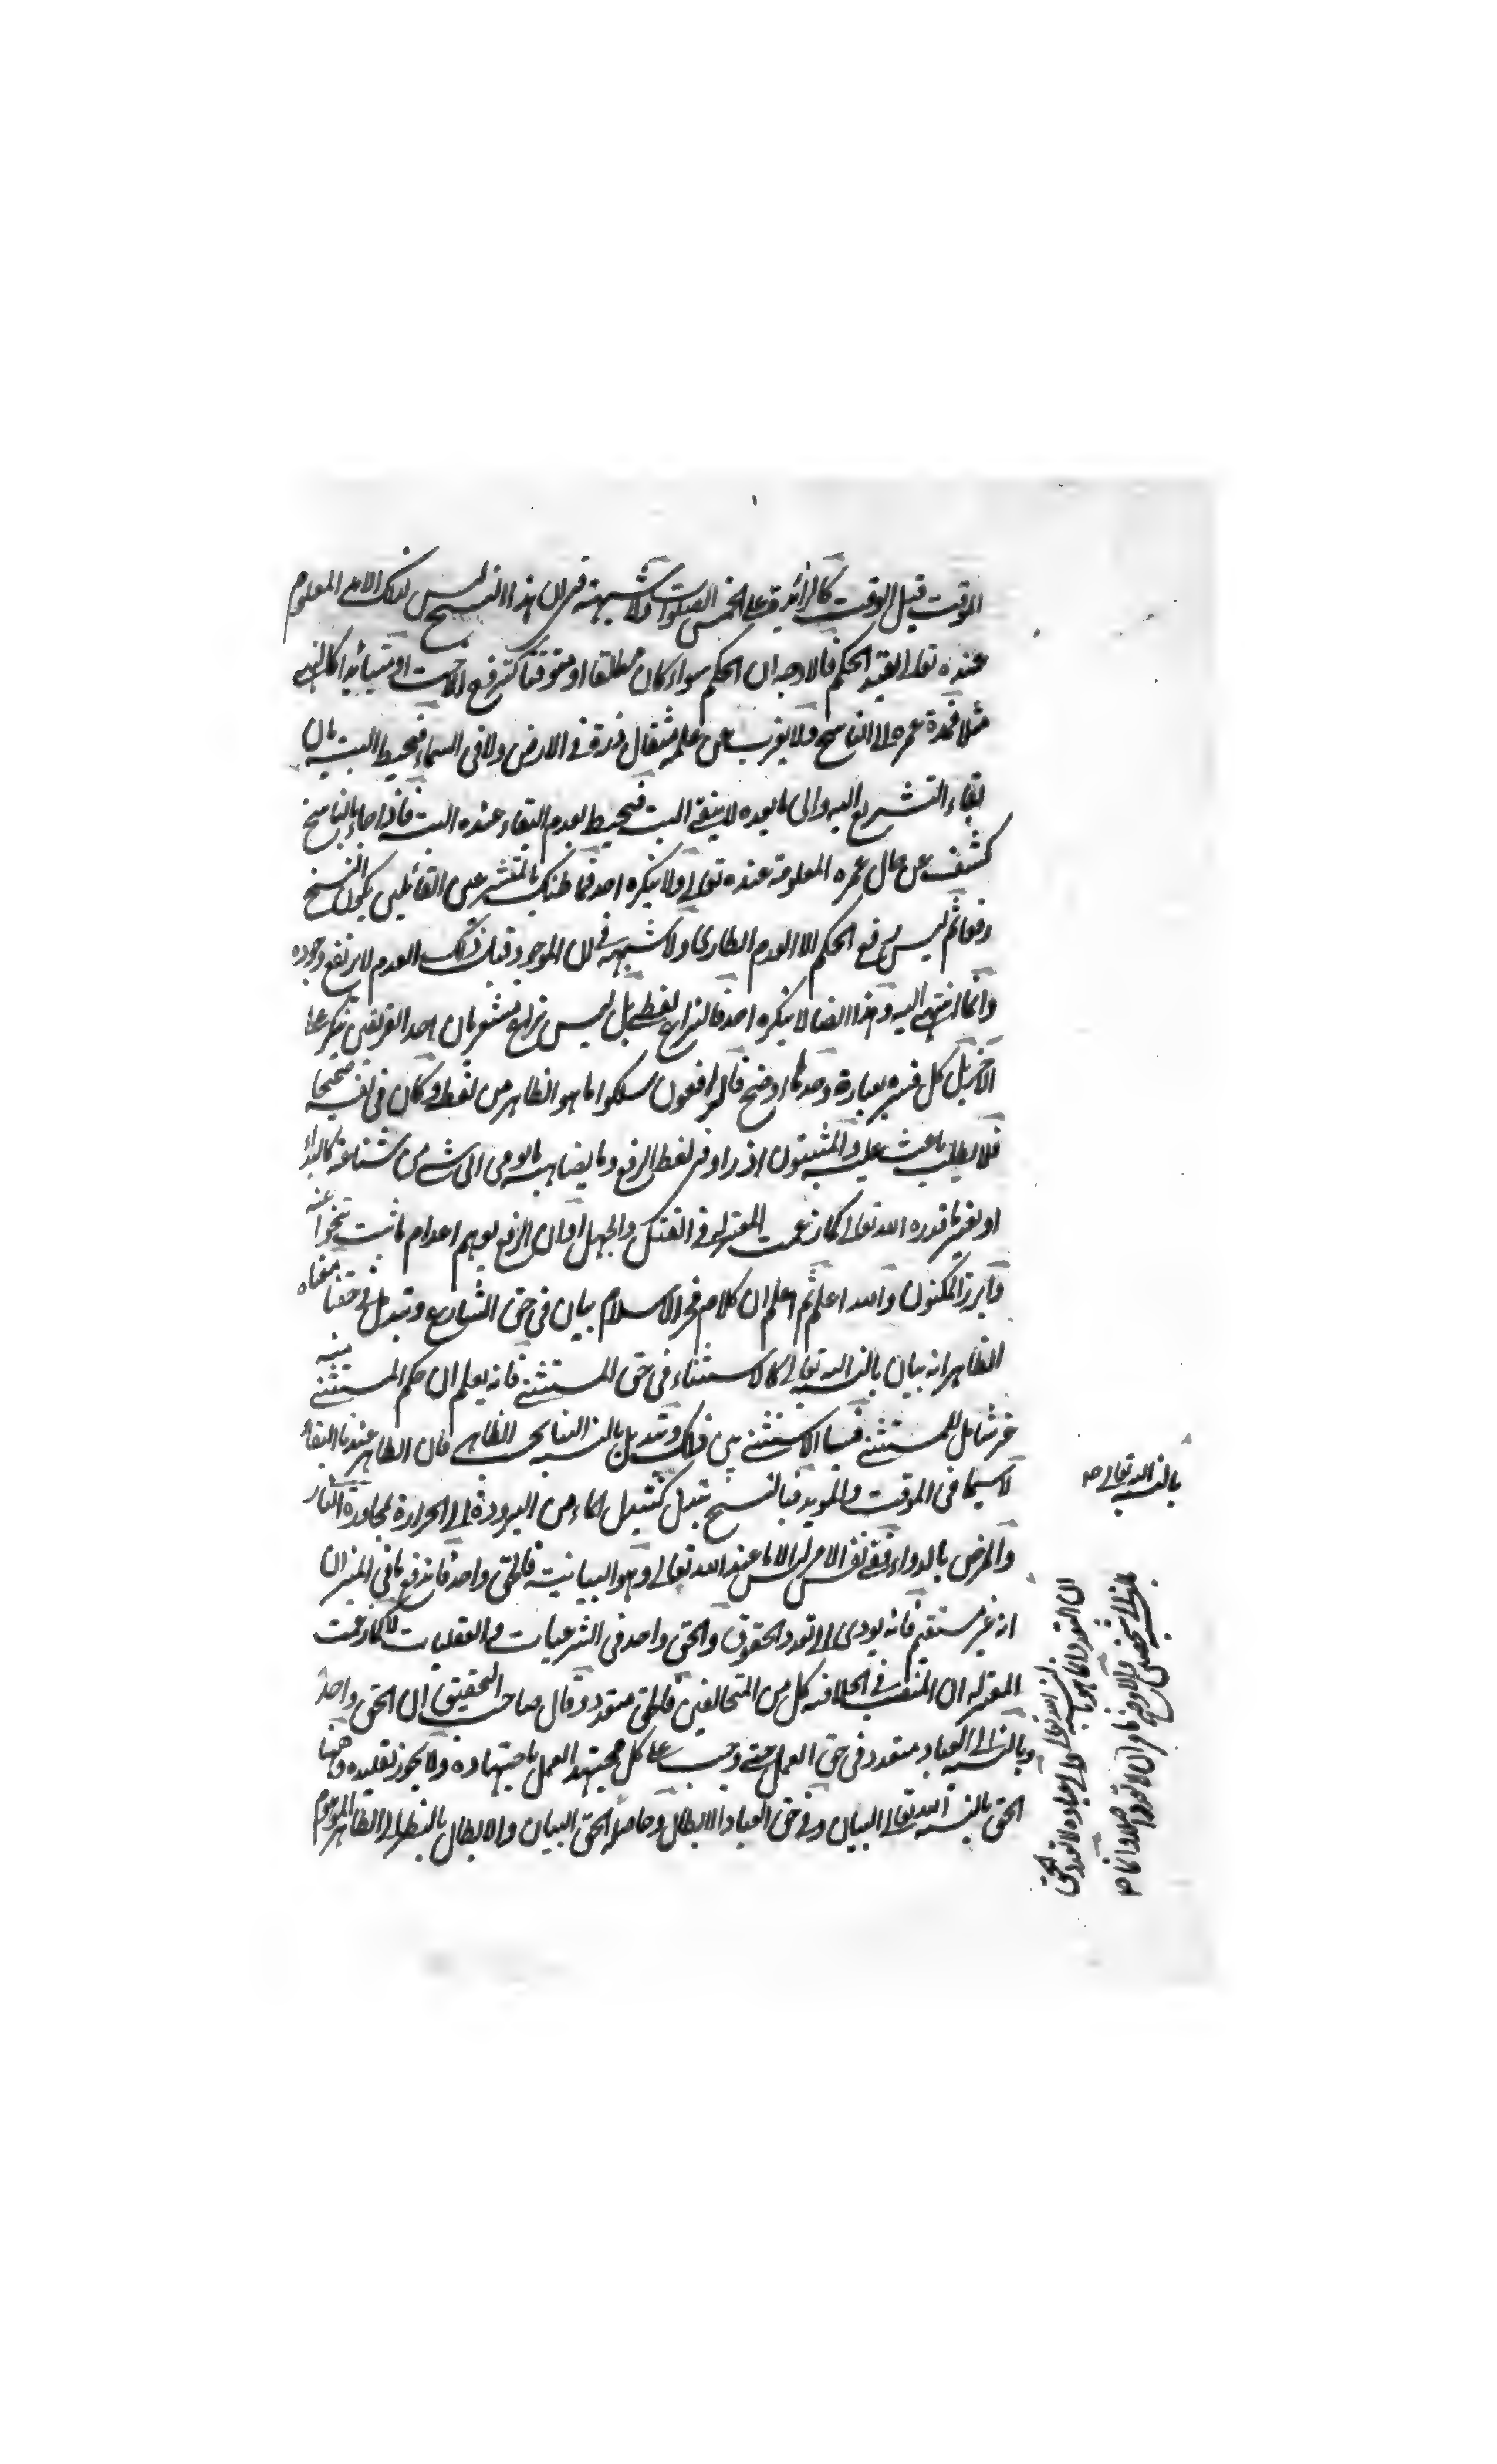 الموقت قبل الوقت كالزائدة على الخمس الصلوات ولا شبهة في ان هذا النسخ ليس كذلك الا في المعلوم
عنده تعالى بقيد الحكم فالاوجه ان الحكم سواء كان مطلقا او موقتا كترفع اكالنهي
مثلا فمدة عمره الى الناسخ ولا يعزب عن علمه مثقال ذرة في الارض ولا في السماء فيحيط البتة بان
بقاء التشريع اليه والى ما بعده لا يبقى البتة فيحيط بعدم البقاء عنده البتة فاذا جاء بالناسخ
كشف عن حال عمره المعلومة عنده تعالى ولا ينكره احد فما ظنك بالمتشرعين القائلين بكون النسخ
رفعا ثم ليس رفع الحكم الا العدم الطارئ ولا شبهة في ان الموجود قبل ذلك العدم لا يرتفع وجوده
وانما انتهى اليه وهذا ايضا لا ينكره احد فالنزاع لفظي بل ليس نزاع مشعر بان احد الفريقين ينكر على
الآخر بل كل فسره بعبارة وجدها اوضح فالرافعون سلكوا ما هو الظاهر من لفظه وكان في نفسه صحيحا
فلا يطلب باعث عليه والمثبتون اذ راوا في لفظ الرفع وما يضاهيه ما يومي الى شيء من شناعة كالبداء
او تغير ما قدره الله تعالى كما زعمت المعتزلة في القتل والجهل او ان الرفع يوهم اعدام ما ثبت تنحوا عنه
وابرز المكنون والله اعلم ثم اعلم ان كلام فخر الاسلام بيان في حق الشارع وتبديل في حقنا معناه
الظاهر انه بيان بالنسبة الى الله تعالى كالاستثناء في حق المستثنى فانه يعلم ان حكم المستثنى منه
غير شامل للمستثنى فبالاستثناء بين ذلك وتبديل بالنسبة الينا بحسب الظاهر فان الظاهر عندنا البقاء
لا سيما في الموقت والمؤبد فبالنسخ تبدل كتبديل الماء من البرودة الى الحرارة لمجاورة النار
والمرض بالدواء ففي نفس الامر ليس الا ما عند الله تعالى وهو البيانية فالحق واحد فاندفع ما في الميزان
انه غير مستقيم فانه يودي الى تعدد الحقوق والحق واحد في الشرعيات والعقليات لا كما زعمت
المعتزلة ان المنصب في الخلافه كل من المتخالفين فالحق متعدد وقال صاحب التحقيق ان الحق واحد
وبالنسبة الى العباد متعدد في حق العمل حتى وجب على كل مجتهد العمل باجتهاده ولا يجوز تقليده وههنا
الحق بالنسبة الى الله تعالى البيان وفي حق العباد الابطال وحاصله الحق البيان والابطال بالنظر الى الظاهر الموهوم
بالنسبة الى الله تعالى صح
ان التعدد انما هو بالنسبة
الى الله تعالى والى عباده لا تعدد الحق
بالنسبة الى شخصين